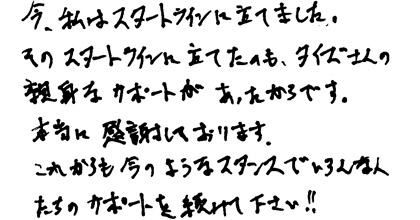 今、私はスタートラインに立てました。
そのスタートラインに立てたのも、タイズさんの
親身なサポートがあったからです。
本当に感謝しております。
これからも今のようなスタンスでいろんな人
たちのサポートを続けて下さい!!